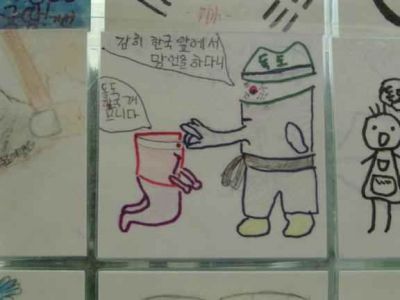 감히 한국 앞에서
망언을 하다니
독도
독도
한국 꺼
므니다
독도